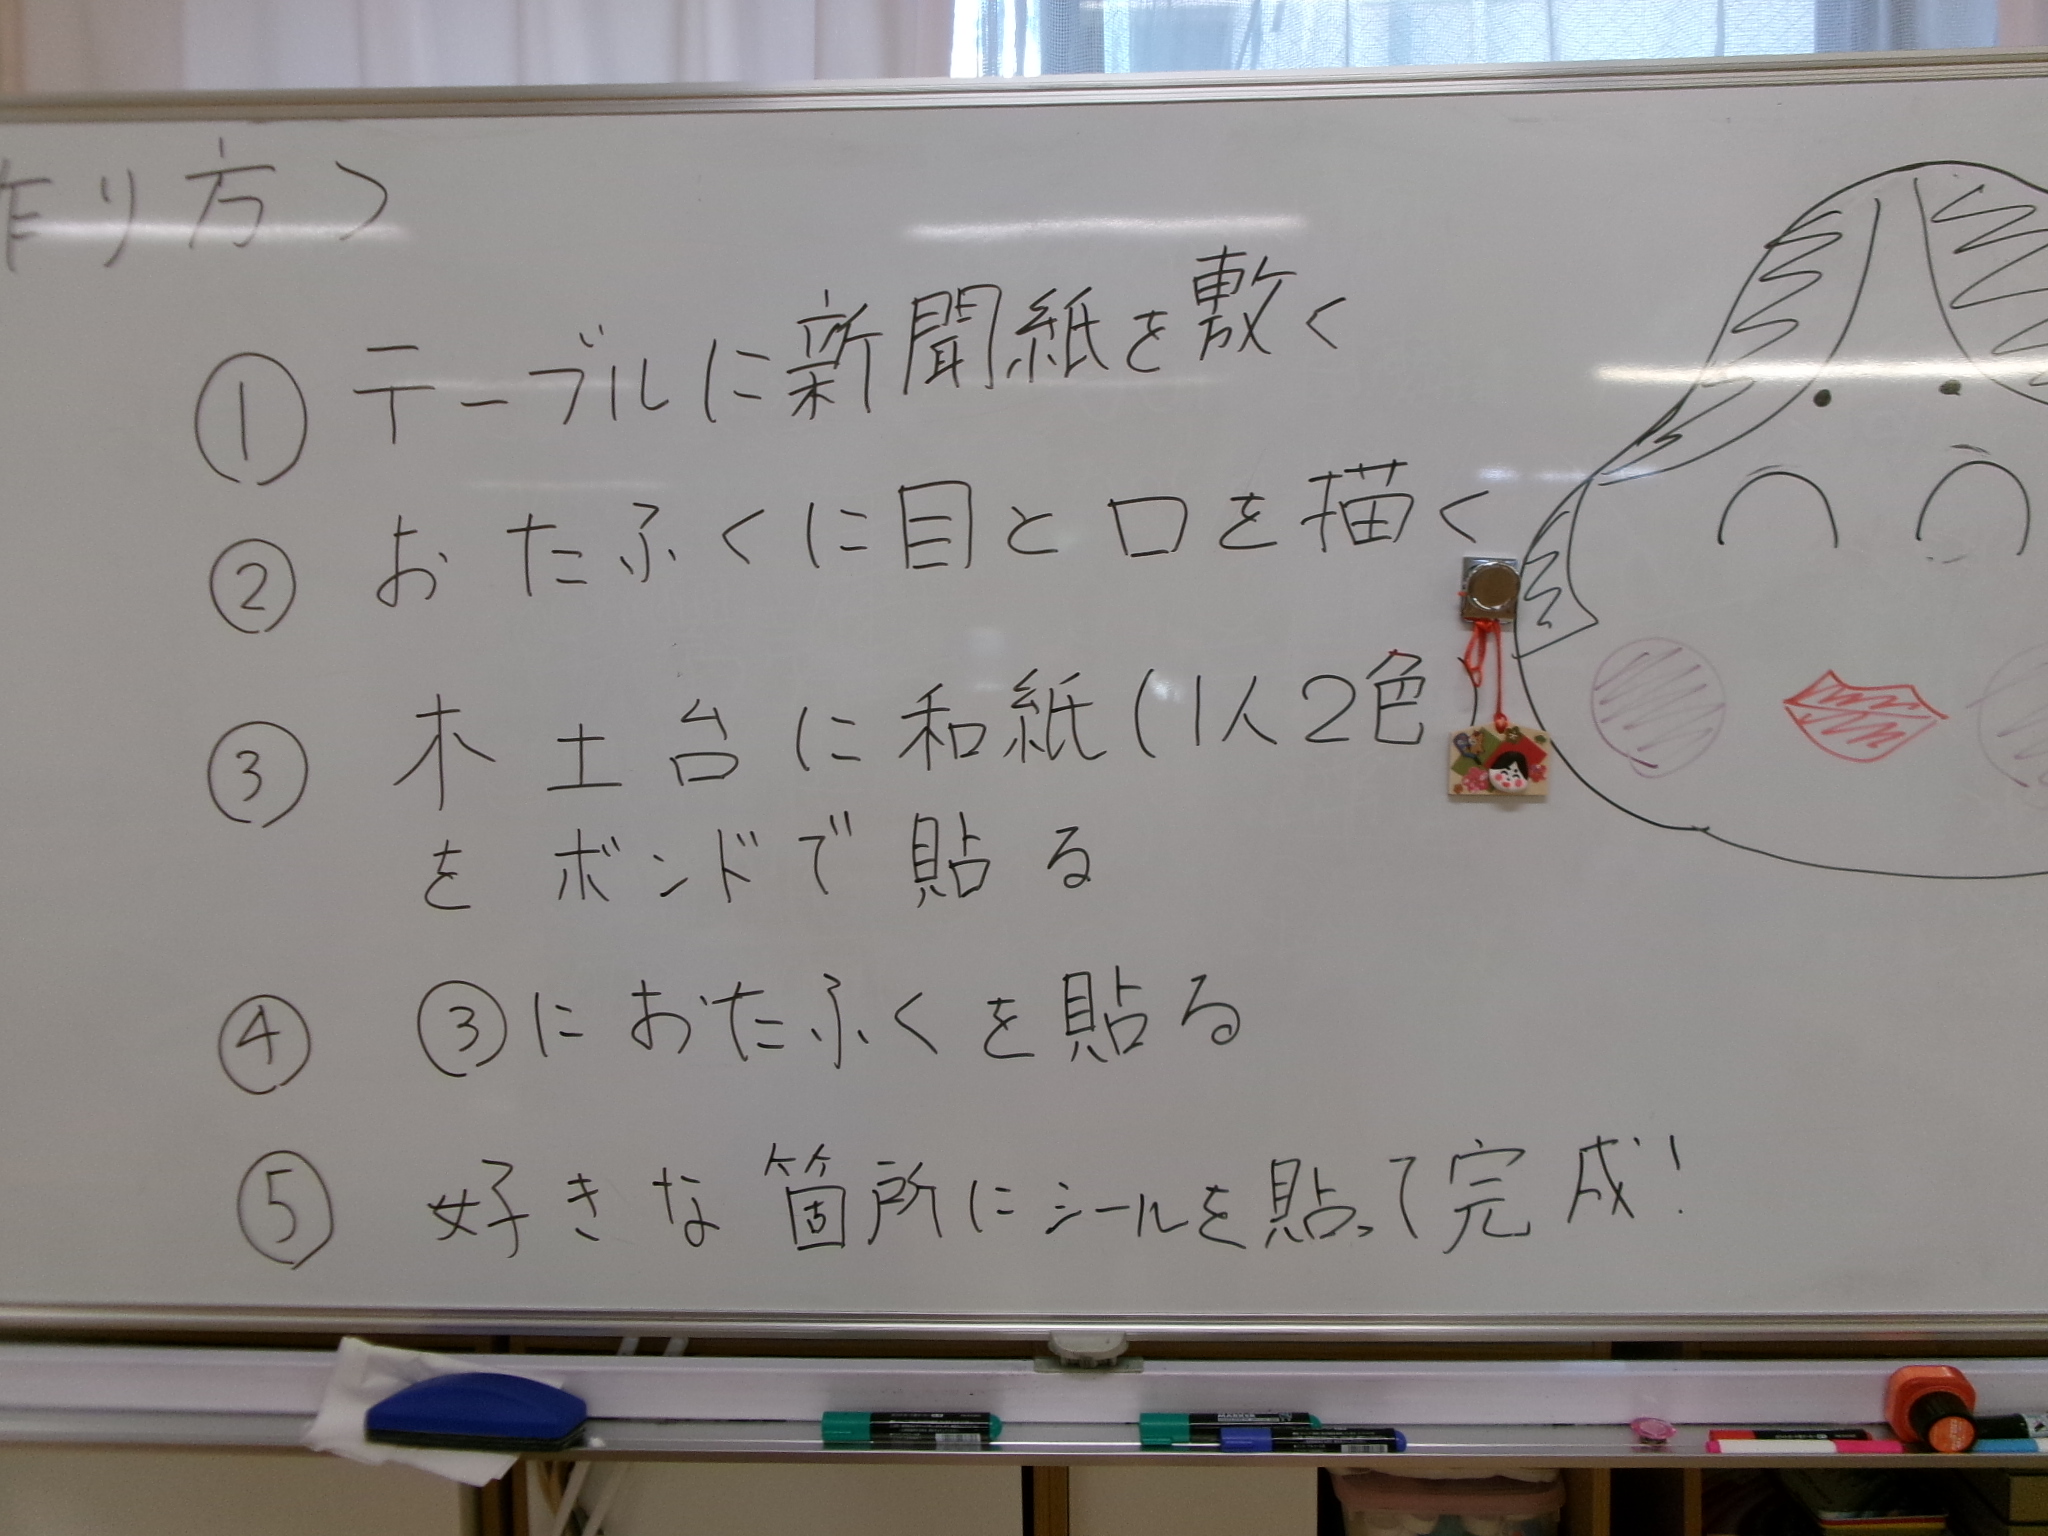 作り方〉
① テーブルに新聞紙を敷く
② おたふくに目と口を描く
③ 木土台に和紙(1人2色)
をボンドで貼る
④ ③におたふくを貼る
⑤ 好きな箇所にシールを貼って完成!